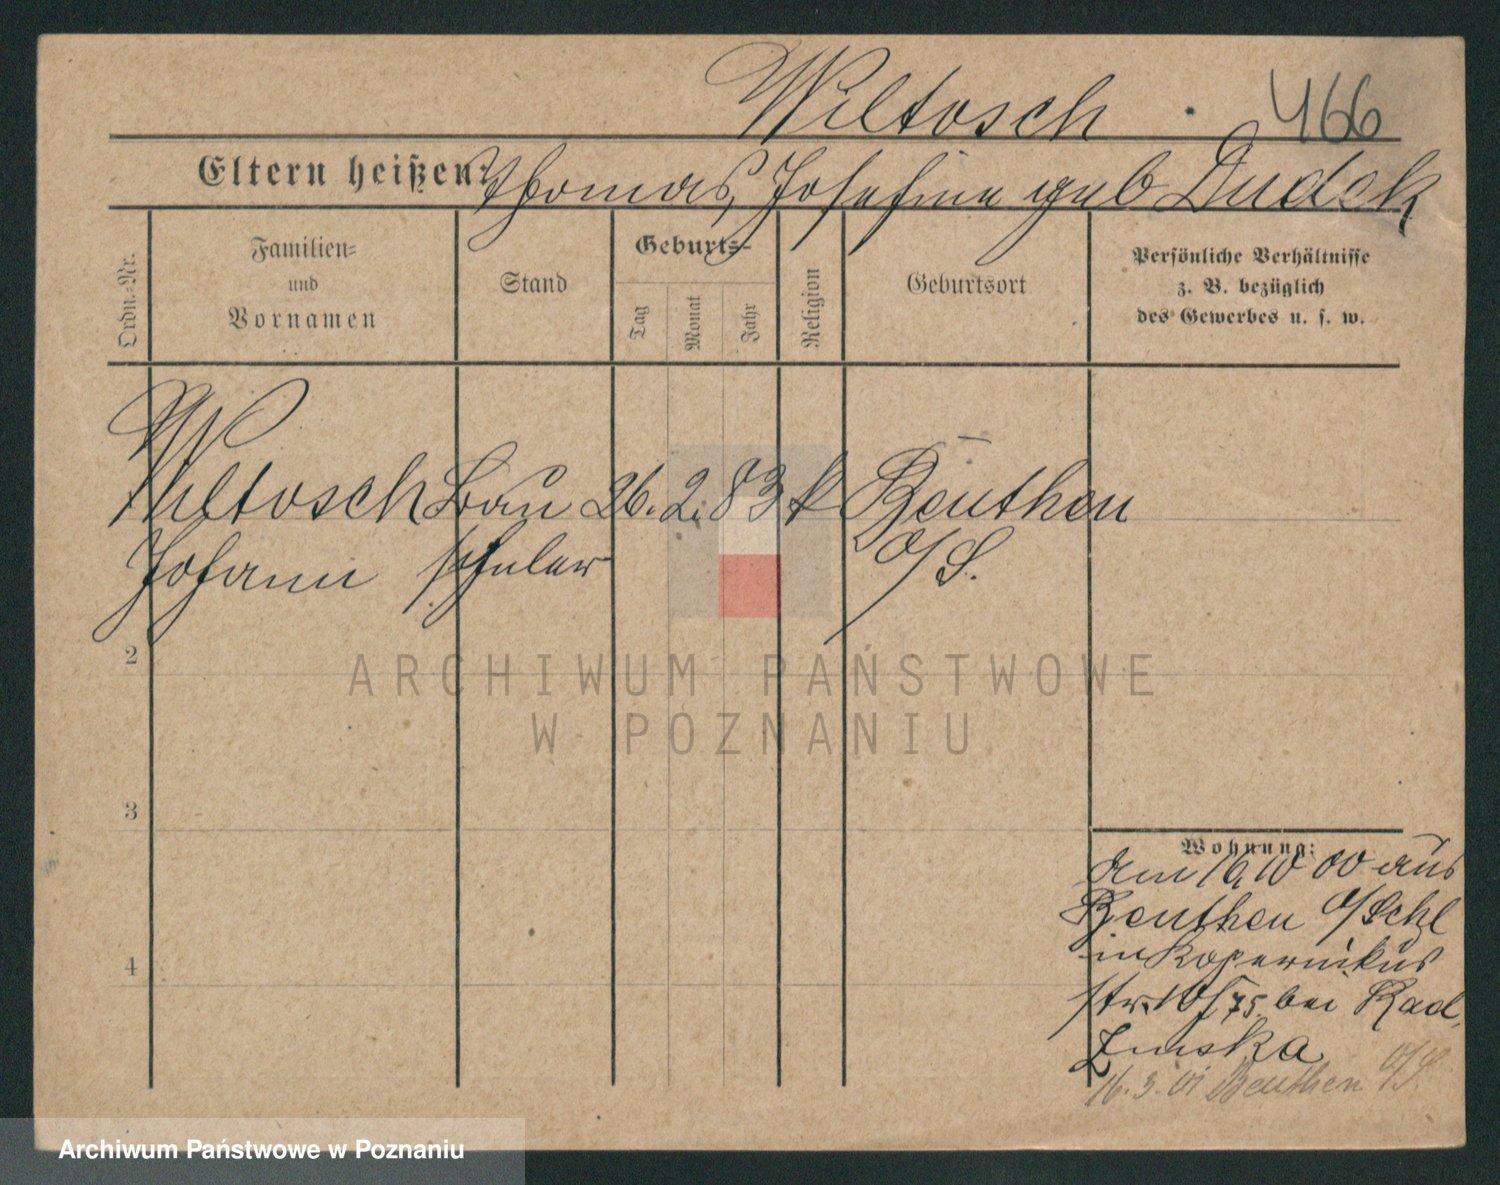 Wiltosch 466
Eltern heißen: Thomas, Josefine geb Dudek
Ordn.-Nr.
Familien-
und
Vornamen
Stand
Geburts-
Tag
Monat
Jahr
Religion
Geburtsort
Persönliche Verhältnisse
z. B. bezüglich
des Gewerbes u. s. w.
Wiltosch Bau 26. 2. 83 k Beuthen
Johann schüler O/S.
2
ARCHIWUM PAŃSTWOWE
W POZNANIU
3
4
Wohnung:
Am 16 10 00 aus
Beuthen O/Schl
in Kopernikus
str. 10 bei Rad
zinska
16. 3. 01 Beuthen O/S.
Archiwum Państwowe w Poznaniu